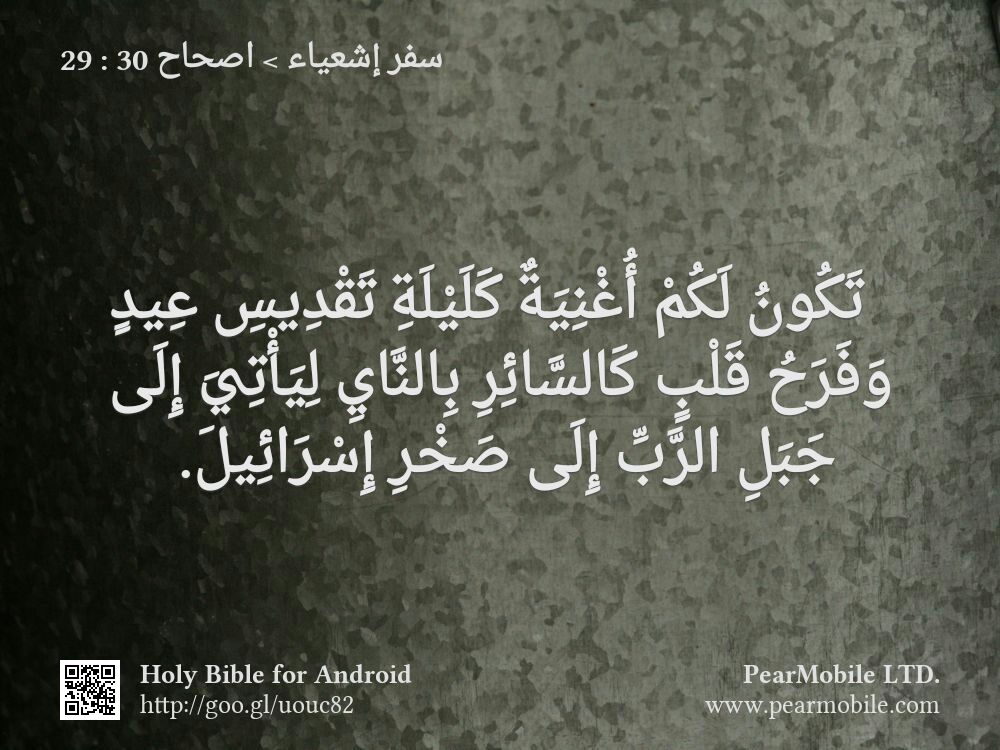 سفر إشعياء > اصحاح 30 : 29
تَكُونُ لَكُمْ أُغْنِيَةٌ كَلَيْلَةِ تَقْدِيسِ عِيدٍ
وَفَرَحُ قَلْبٍ كَالسَّائِرِ بِالنَّايِ لِيَأْتِيَ إِلَى
جَبَلِ الرَّبِّ إِلَى صَخْرِ إِسْرَائِيلَ.
Holy Bible for Android
http://goo.gl/uouc82
PearMobile LTD.
www.pearmobile.com